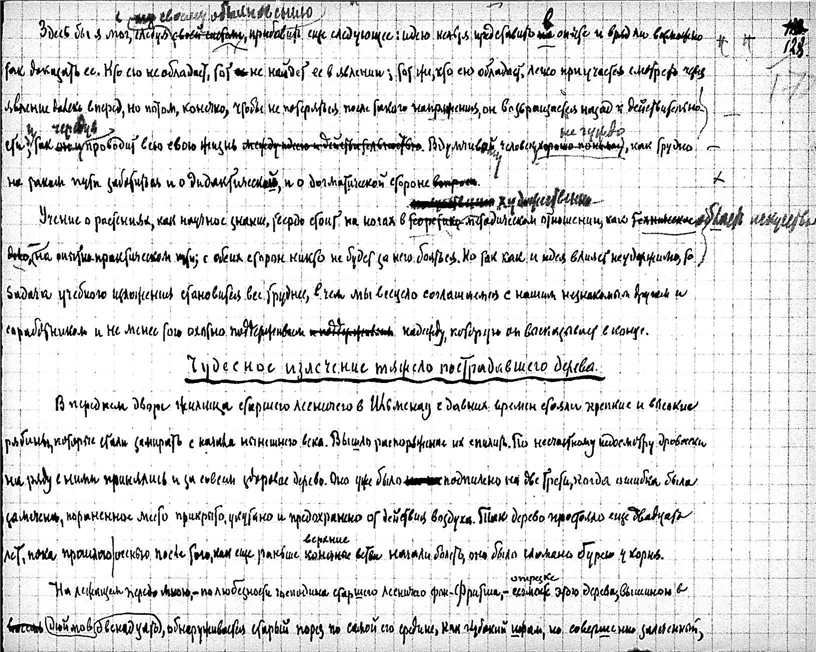 по своему обыкновению
Здесь бы я мог, прибавить еще следующее: идею нельзя представить в опыте и вряд ли возможно
128
так доказать ее. Кто ею не обладает, тот не найдет ее в явлении; тот же, кто ею обладает, легко приучается смотреть через
явление далеко вперед, но потом, конечно, чтобы не потеряться после такого напряжения, он возвращается назад к действительно
сти и так чередуя проводит всю свою жизнь. Вдумчивому человеку не чуждо, как трудно
на таком пути заботиться и о дидактической, и о догматической стороне
Учение о растениях, как научное знание, твердо стоит на ногах в методическом отношении, как
область искусства
на опытно-практическом пути; с обеих сторон никто не будет за него бояться. Но так как и идея влияет неудержимо, то
задача учебного изложения становится все труднее, в чем мы всецело соглашаемся с нашим незнакомым другом и
сотрудником и не менее того охотно поддерживаем надежду, которую он высказывает в конце.
Чудесное излечение тяжело пострадавшего дерева.
В переднем дворе жилища старшего лесничего в Ильменау с давних времен стояли крепкие и высокие
рябины, которые стали замирать с начала нынешнего века. Вышло распоряжение их спилить. По несчастному недосмотру дровосеки
на ряду с ними принялись и за совсем здоровое дерево. Оно уже было подпилено на две трети, когда ошибка была
замечена, пораненное место прикрыто, укутано и предохранено от действия воздуха. Так дерево простояло еще двадцать
лет, пока прошлою осенью, после того, как еще раньше верхние ветви начали болеть, оно было сломано бурею у корня.
На лежащем передо мною, - по любезности господина старшего лесничего фон-Фрича, - отрезке этого дерева, вышиною в
дюймов двенадцать, обнаруживается старый порез по самой его средине, как глубокий шрам, но совершенно залеченный,